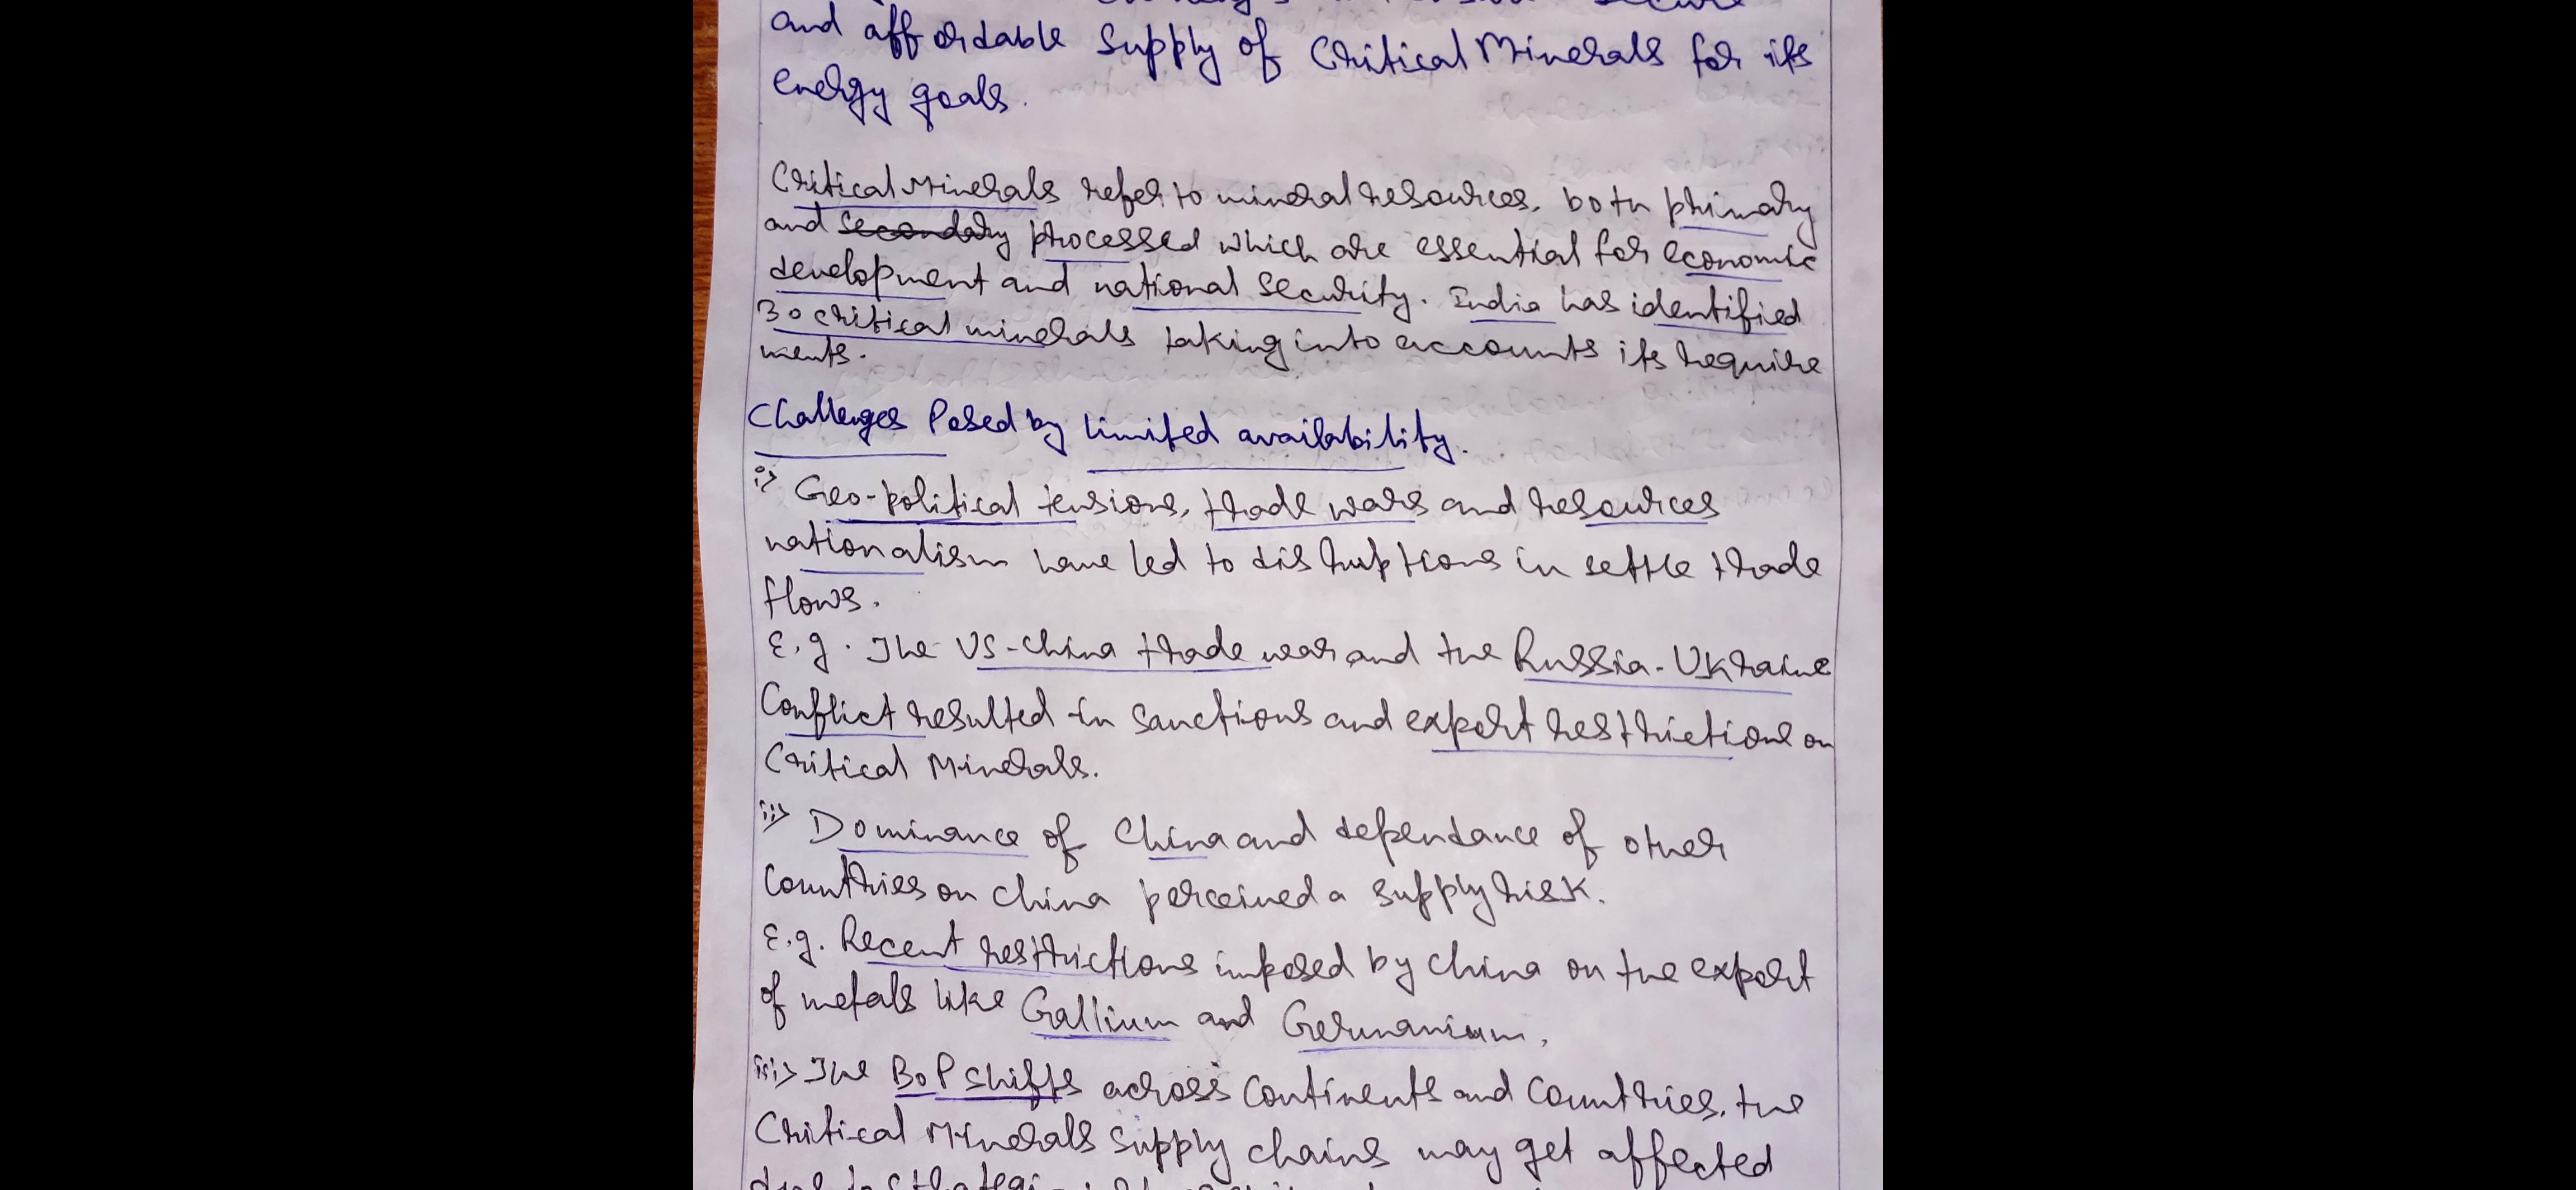 secure
and affordable supply of Critical Minerals for its
energy goals.
Critical Minerals refer to mineral resources, both primary
and secondary processed which are essential for economic
development and national security. India has identified
30 critical minerals taking into accounts its require
ments.
Challenges Posed by limited availability.
i> Geo-political tensions, trade wars and resources
nationalism have led to disruptions in settle trade
flows.
E.g. The US-China trade war and the Russia-Ukraine
Conflict resulted in sanctions and export restrictions on
Critical Minerals.
ii> Dominance of China and dependance of other
Countries on China perceived a supply risk.
E.g. Recent restrictions imposed by China on the export
of metals like Gallium and Germanium.
iii> The BoP shifts across Continents and Countries, the
Critical Minerals supply chains may get affected
due to